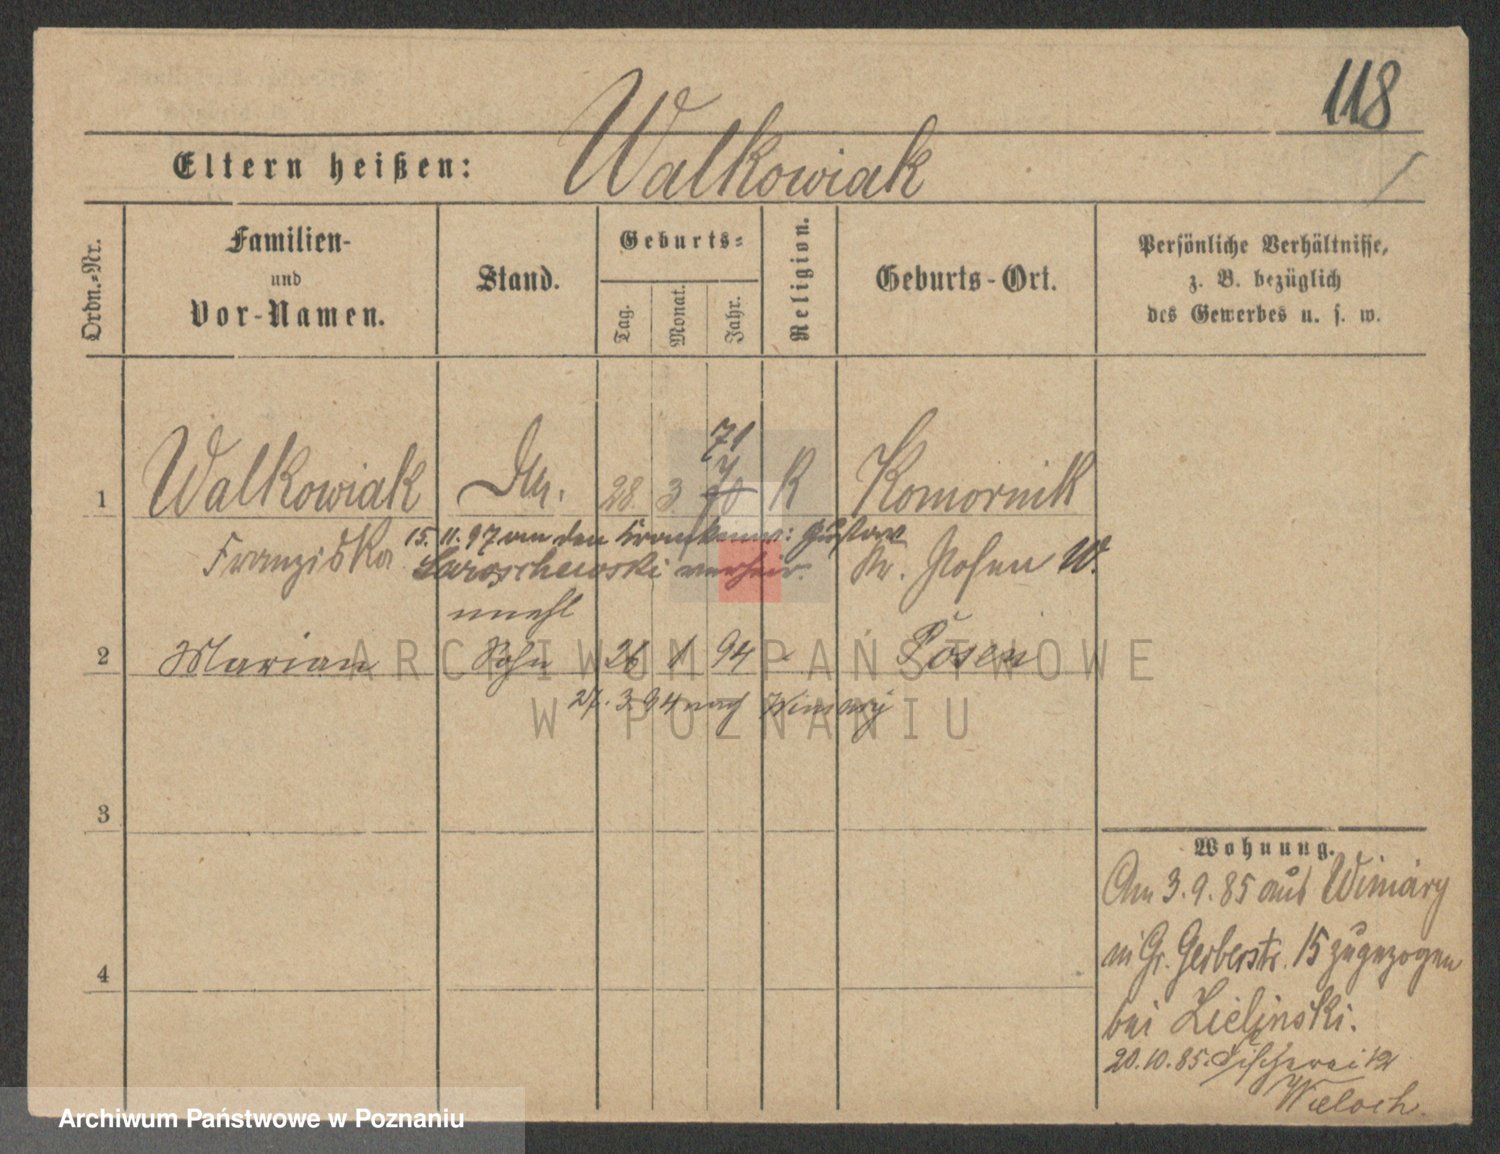 118
Eltern heißen: Walkowiak
Ordn.-Nr.
Familien-
und
Vor-Namen.
Stand.
Geburts-
Tag.
Monat.
Jahr.
Religion.
Geburts-Ort.
Persönliche Verhältnisse,
z. B. bezüglich
des Gewerbes u. s. w.
71
1 Walkowiak 28 3 70 K Komornik
Franziska 15.11.97 an den Gustav
verheir. Kr. Posen W.
unehl
2 Marian Sohn 26 1 94 - Posen
27.3.94 nach Winiary
3
4
Wohnung.
Am 3.9.85 aus Winiary
in Gr. Gerberstr. 15 zugezogen
bei Zielinski.
20.10.85. Fischerei 12
Wieloch.
ARCHIWUM PAŃSTWOWE
W POZNANIU
Archiwum Państwowe w Poznaniu